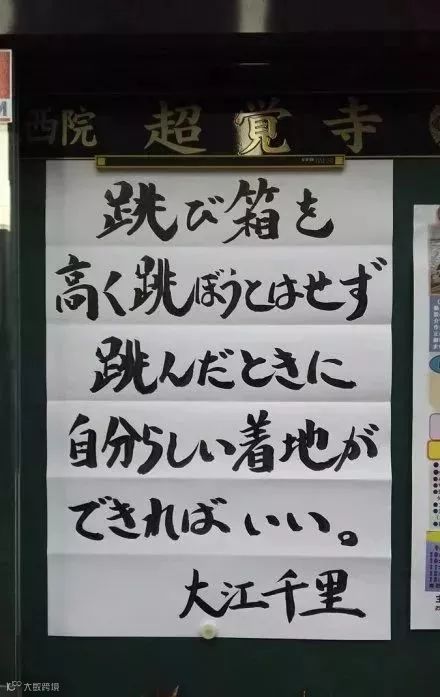 西院 超覚寺
跳び箱を
高く跳ぼうとはせず
跳んだときに
自分らしい着地が
できればいい。
大江千里
大数跨境